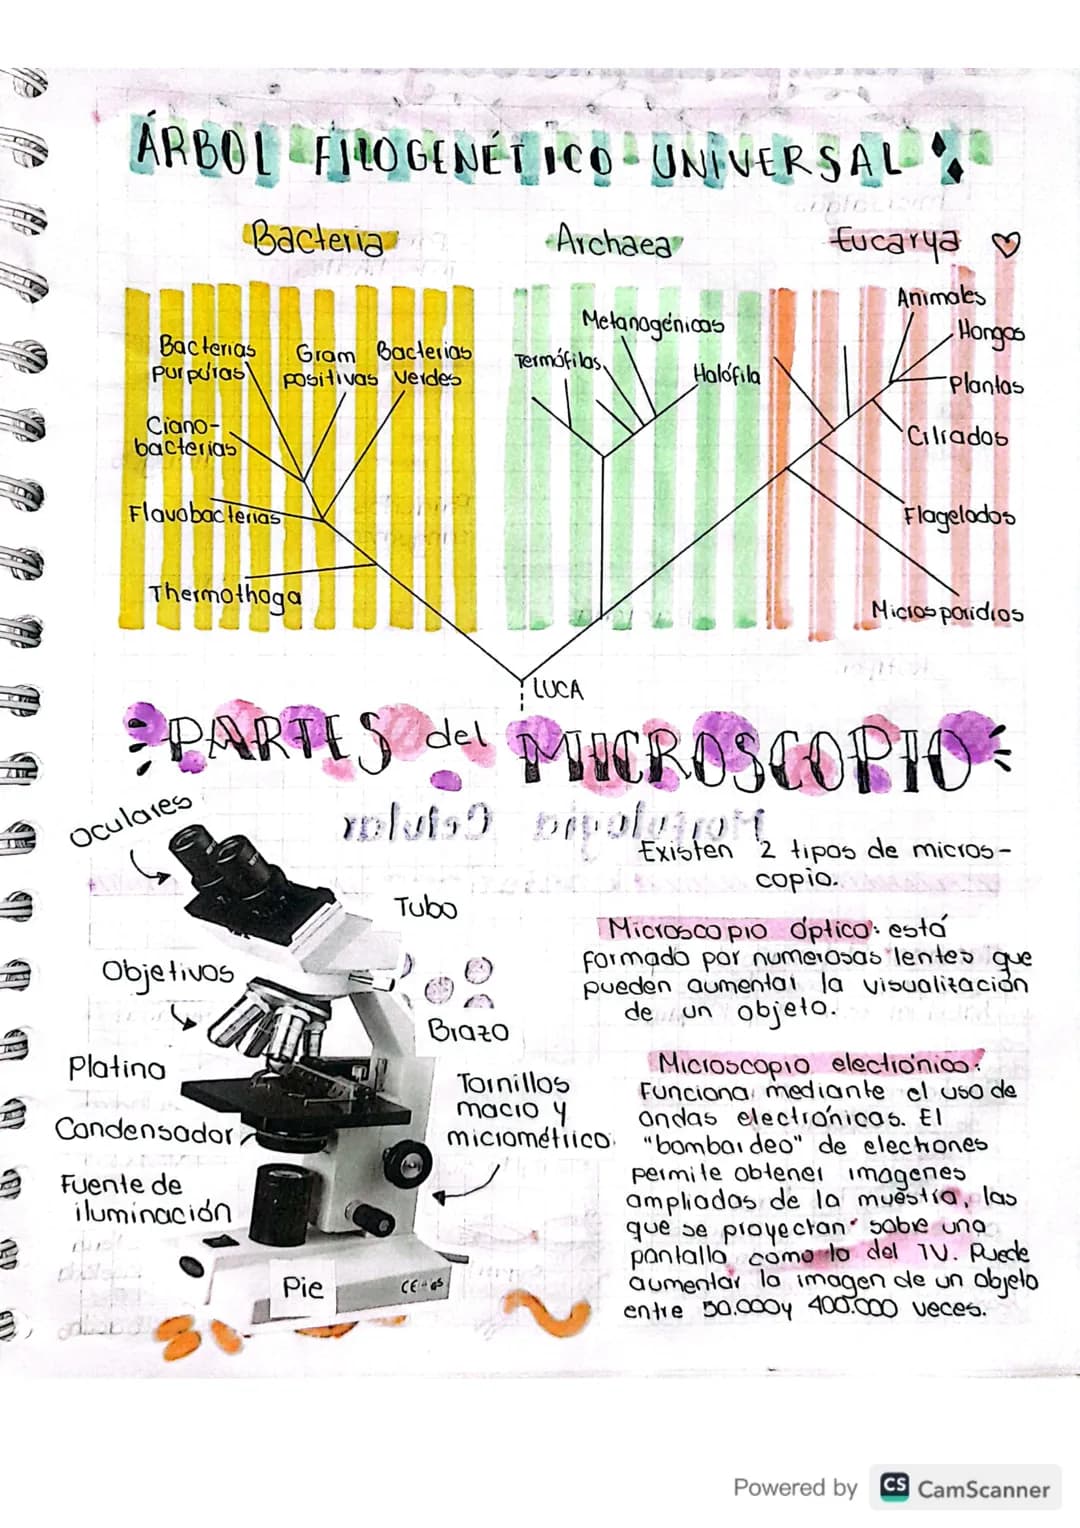 ÁRBOL FILOGENÉTICO UNIVERSAL
Bacteria
Archaea
Eucarya
Bacterias
purpúras
Gram
positivas
Bacterias
verdes
Ciano-
bacterias
Flavobacterias
Thermothoga
Metanogénicas
Termófilas
Halófila
Animales
Hongos
Plantas
Ciliados
Flagelados
Microsporidios
LUCA
PARTES del MICROSCOPIO
Morfología Celular
Oculares
Tubo
Objetivos
Brazo
Platina
Tornillos
macro y
micrométrico.
Condensador
Fuente de
iluminación
Pie
Existen 2 tipos de micros-
copio.
Microscopio óptico: está
formado por numerosas lentes que
pueden aumentar la visualización
de un objeto.
Microscopio electrónico:
Funciona mediante el uso de
ondas electrónicas. El
"bombardeo" de electrones
permite obtener imagenes
ampliadas de la muestra, las
que se proyectan sobre una
pantalla como la del TV. Puede
aumentar la imagen de un objeto
entre 50.000 y 400.000 veces.
Powered by CS CamScanner